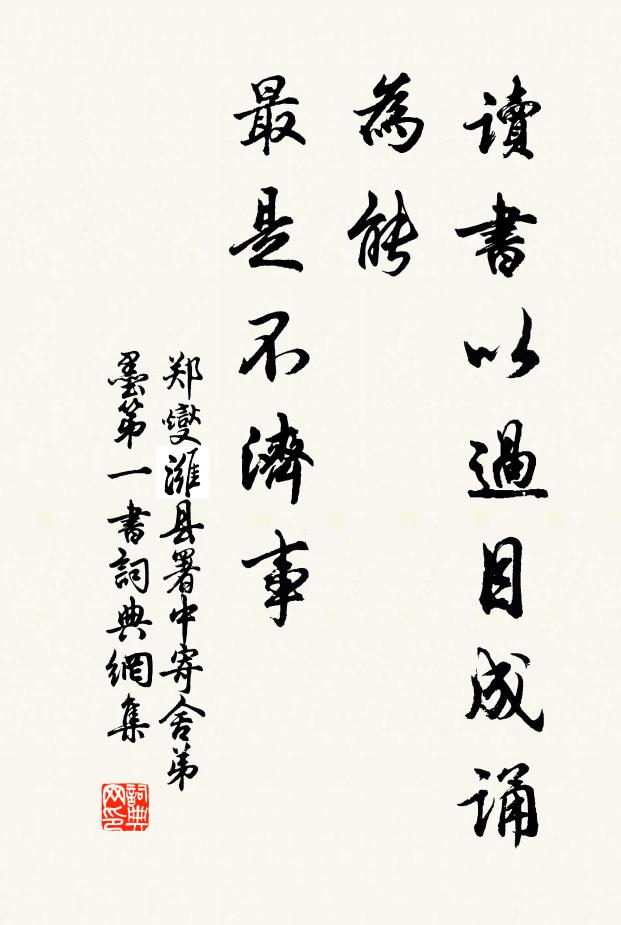 讀書以過目成誦
為能
最是不濟事
郑燮濰县署中寄舍弟
墨第一書詞典網集
詞典
网印